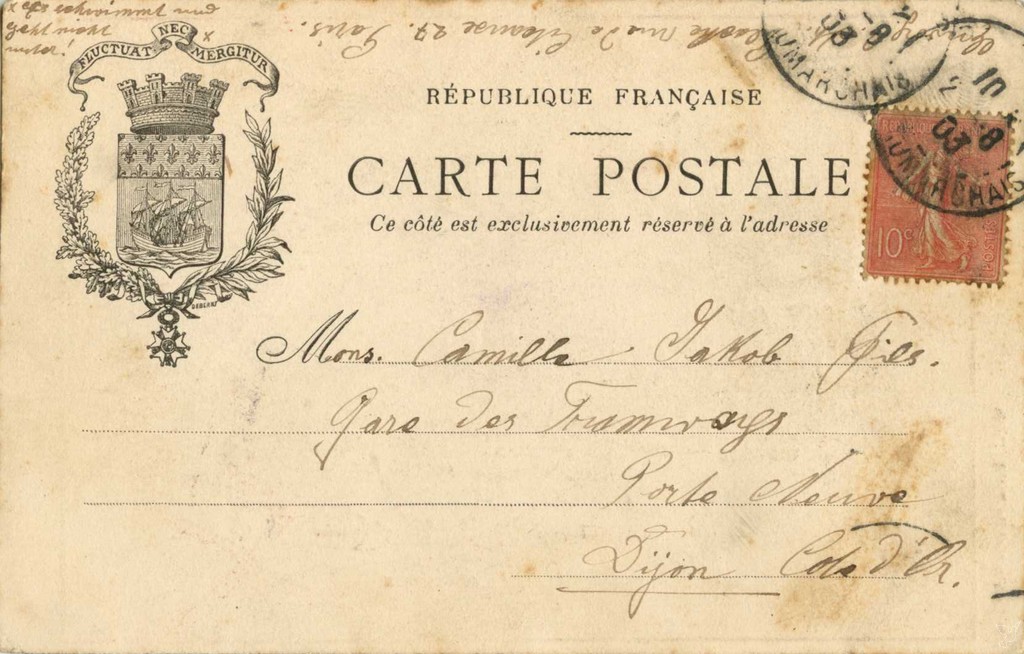 x es schwimmt und
geht nicht
unter!
FLUCTUAT NEC MERGITUR
x
rue de 27. Paris.
RÉPUBLIQUE FRANÇAISE
CARTE POSTALE
Ce côté est exclusivement réservé à l'adresse
10
8
03
UMARCHAIS
10
8
03
UMARCHAIS
10c
POSTES
Mons. Camille Jakob fils.
Gare des Tramways
Porte Neuve
Dijon Côte d'Or.